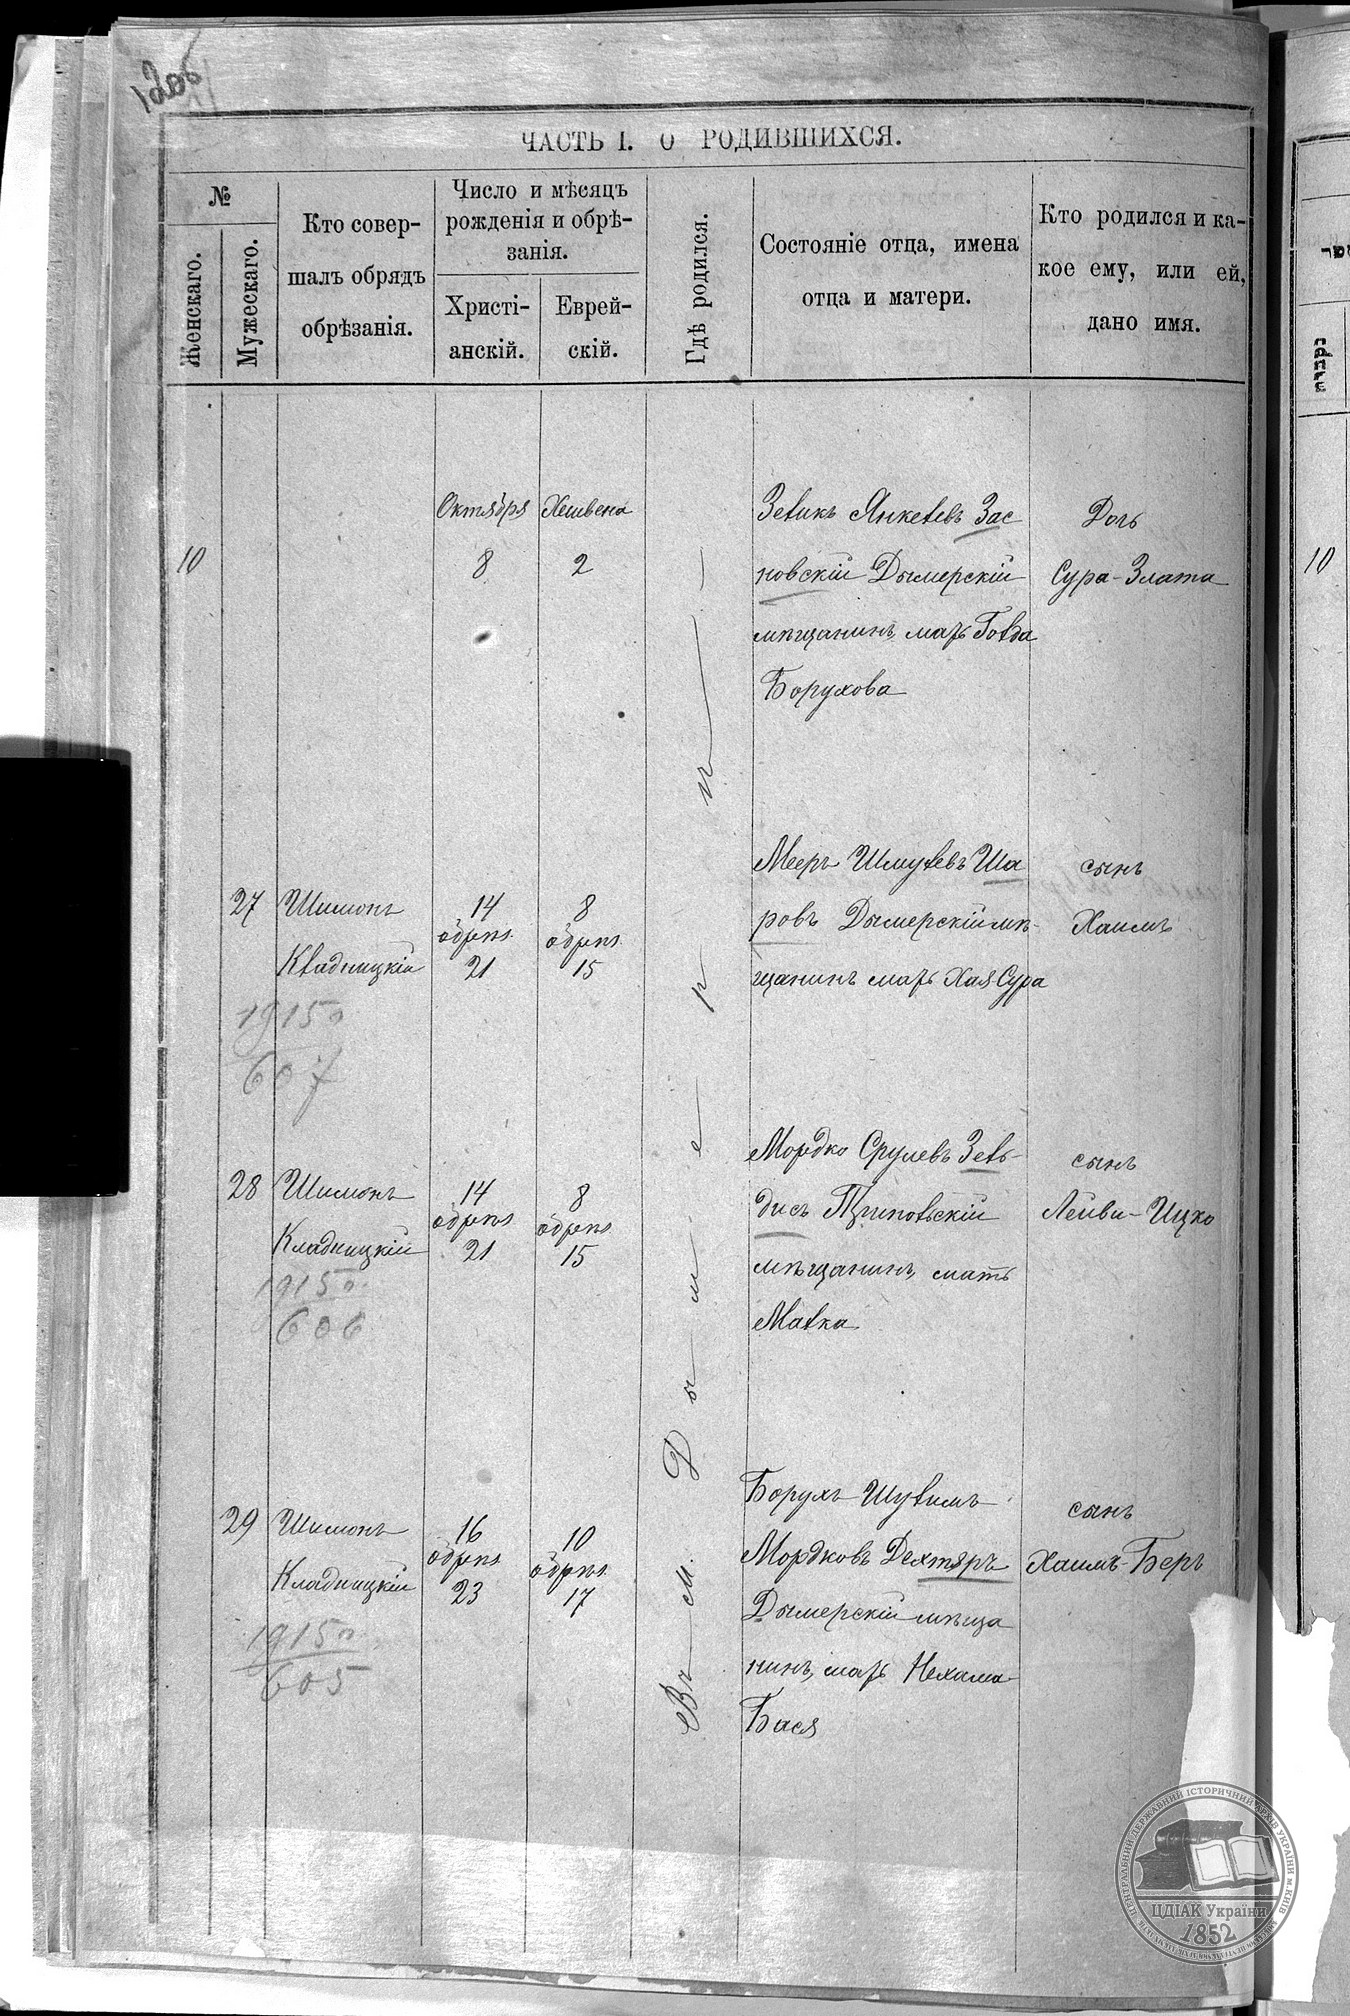 1206
ЧАСТЬ I. О РОДИВШИХСЯ.
№
Женскаго.
Мужескаго.
Кто совер-
шалъ обрядъ
обрѣзанія.
Число и мѣсяцъ
рожденія и обрѣ-
занія.
Христі-
анскій.
Еврей-
скій.
Гдѣ родился.
Состояніе отца, имена
отца и матери.
Кто родился и ка-
кое ему, или ей,
дано имя.
Октября
8
Хешвена
2
10
Зеликъ Янкелевъ Зас
новскій Дымерскій
мѣщанинъ, мать Голда
Борухова
Дочь
Сура-Злата
27
Шимонъ
Кладницкій
1915 г
607
14
обрѣз.
21
8
обрѣз.
15
Мееръ Шмулевъ Ша
ровъ Дымерскій мѣ-
щанинъ мать Хая-Сура
сынъ
Хаимъ
28
Шимонъ
Кладницкій
1915 г.
606
14
обрѣз
21
8
обрѣз
15
Мордко Срулевъ Зель-
дисъ
мѣщанинъ, мать
Малка
сынъ
Лейви-Ицко
29
Шимонъ
Кладницкій
1915 г
605
16
обрѣз
23
10
обрѣз.
17
Борухъ Шулимъ
Мордковъ Дехтяръ
Дымерскій мѣща
нинъ, мать Нехама
Бася
сынъ
Хаимъ-Беръ
Въ м. Дымерн
נקבות
10
ЦЕНТРАЛЬНИЙ ДЕРЖАВНИЙ ІСТОРИЧНИЙ АРХІВ УКРАЇНИ м.КИЇВ
ЦДІАК України
1852